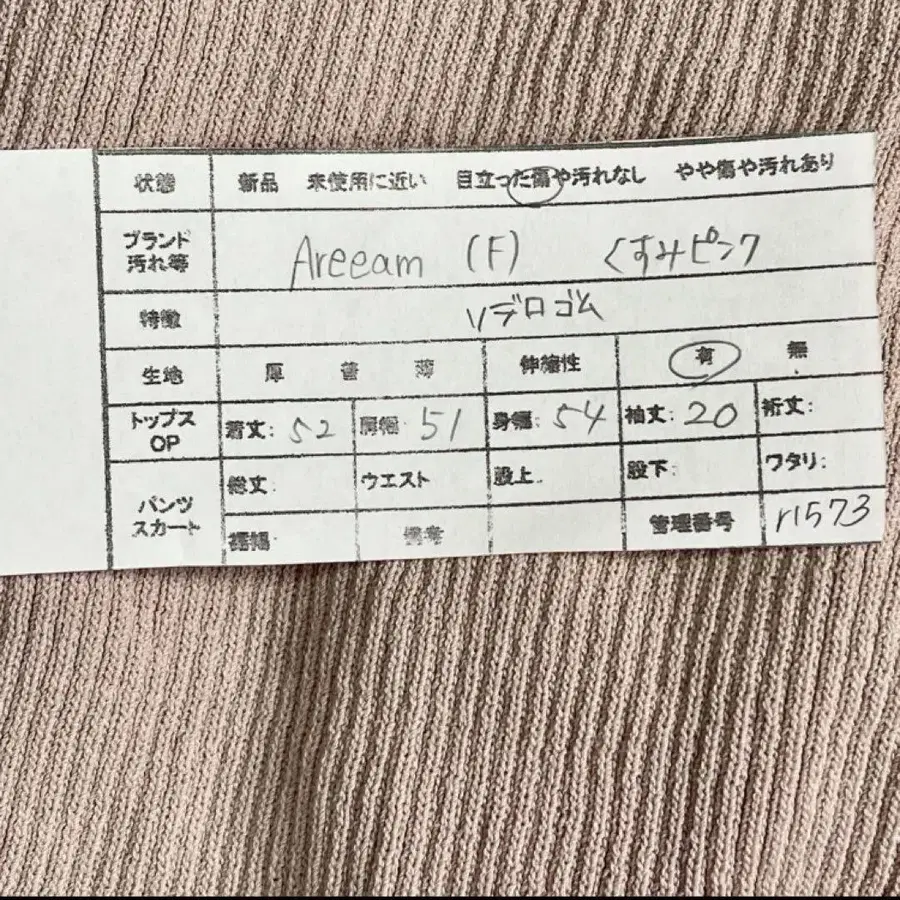 状態 新品 未使用に近い 目立った傷や汚れなし やや傷や汚れあり
ブランド
汚れ等 Areeam (F) くすみピンク
特徴 ソデロゴム
生地 厚 普 薄 伸縮性 有 無
トップス
OP 着丈: 52 肩幅: 51 身幅: 54 袖丈: 20 裄丈:
パンツ
スカート 総丈: ウエスト 股上: 股下: ワタリ:
裾幅: 備考 管理番号 r1573